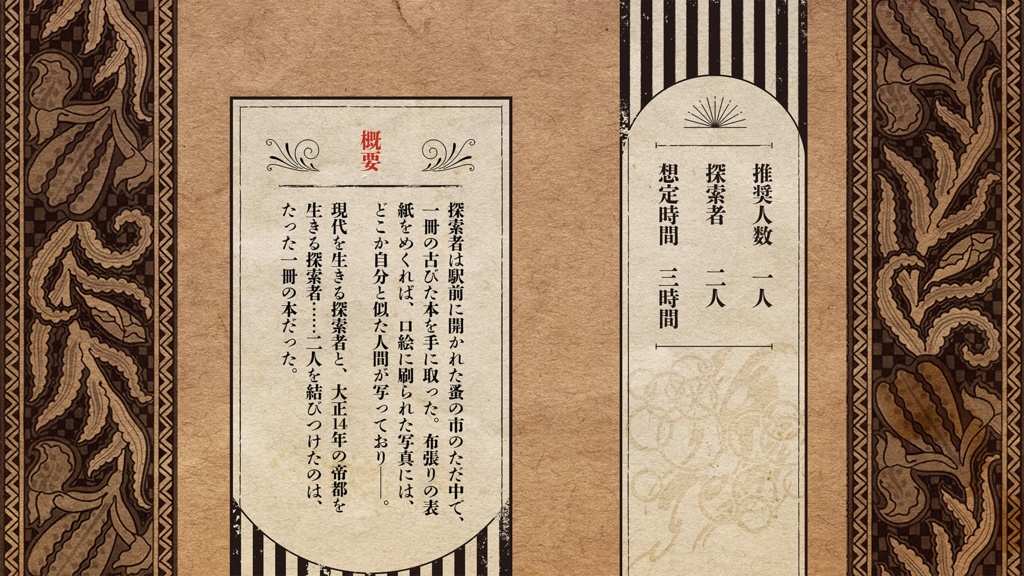 推奨人数 一人
探索者 二人
想定時間 三時間
概要
探索者は駅前に開かれた蚤の市のただ中で、
一冊の古びた本を手に取った。布張りの表
紙をめくれば、口絵に刷られた写真には、
どこか自分と似た人間が写っており――。
現代を生きる探索者と、大正14年の帝都を
生きる探索者……二人を結びつけたのは、
たった一冊の本だった。